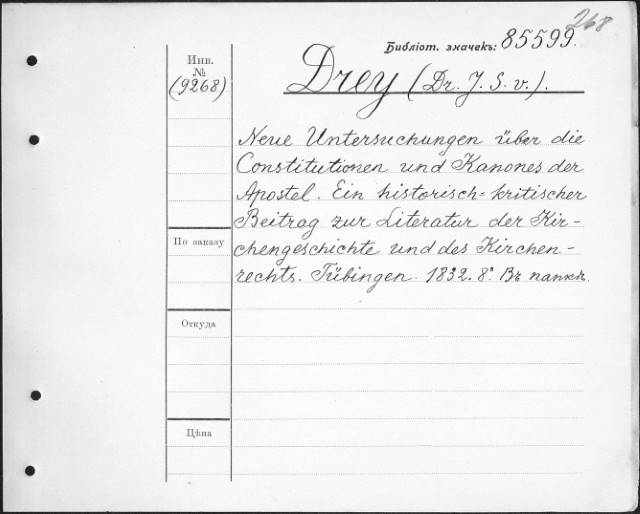 268
Библіот. значекъ: 85599.
Инв.
№
(9268)
Drey (Dr. J. S. v.).
Neue Untersuchungen über die
Constitutionen und Kanones der
Apostel. Ein historisch=kritischer
Beitrag zur Literatur der Kir-
chengeschichte und des Kirchen-
rechts. Tübingen. 1832. 8º. Въ папкѣ.
По заказу
Откуда
Цѣна